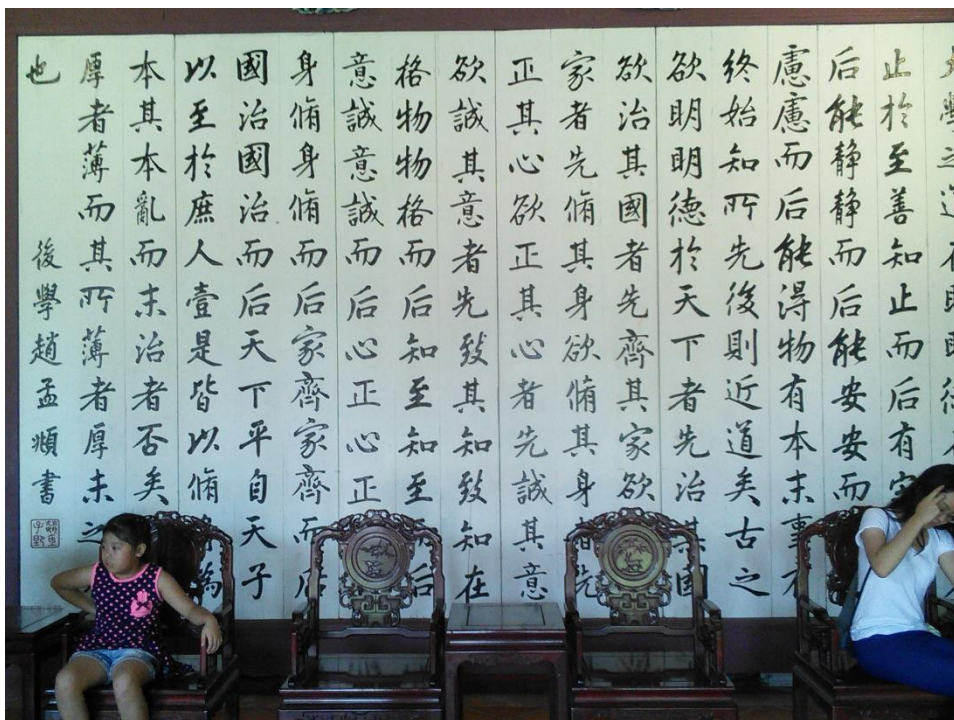 學之道
止於至善知止而后有定
后能静静而后能安安而
慮慮而后能得物有本末事有
終始知所先後則近道矣古之
欲明明德於天下者先治其國
欲治其國者先齊其家欲
家者先脩其身欲脩其身者先
正其心欲正其心者先誠其意
欲誠其意者先致其知致知在
格物物格而后知至知至而后
意誠意誠而后心正心正
身脩身脩而后家齊家齊而后
國治國治而后天下平自天子
以至於庶人壹是皆以脩身為
本其本亂而末治者否矣
厚者薄而其所薄者厚未之
也
後學趙孟頫書